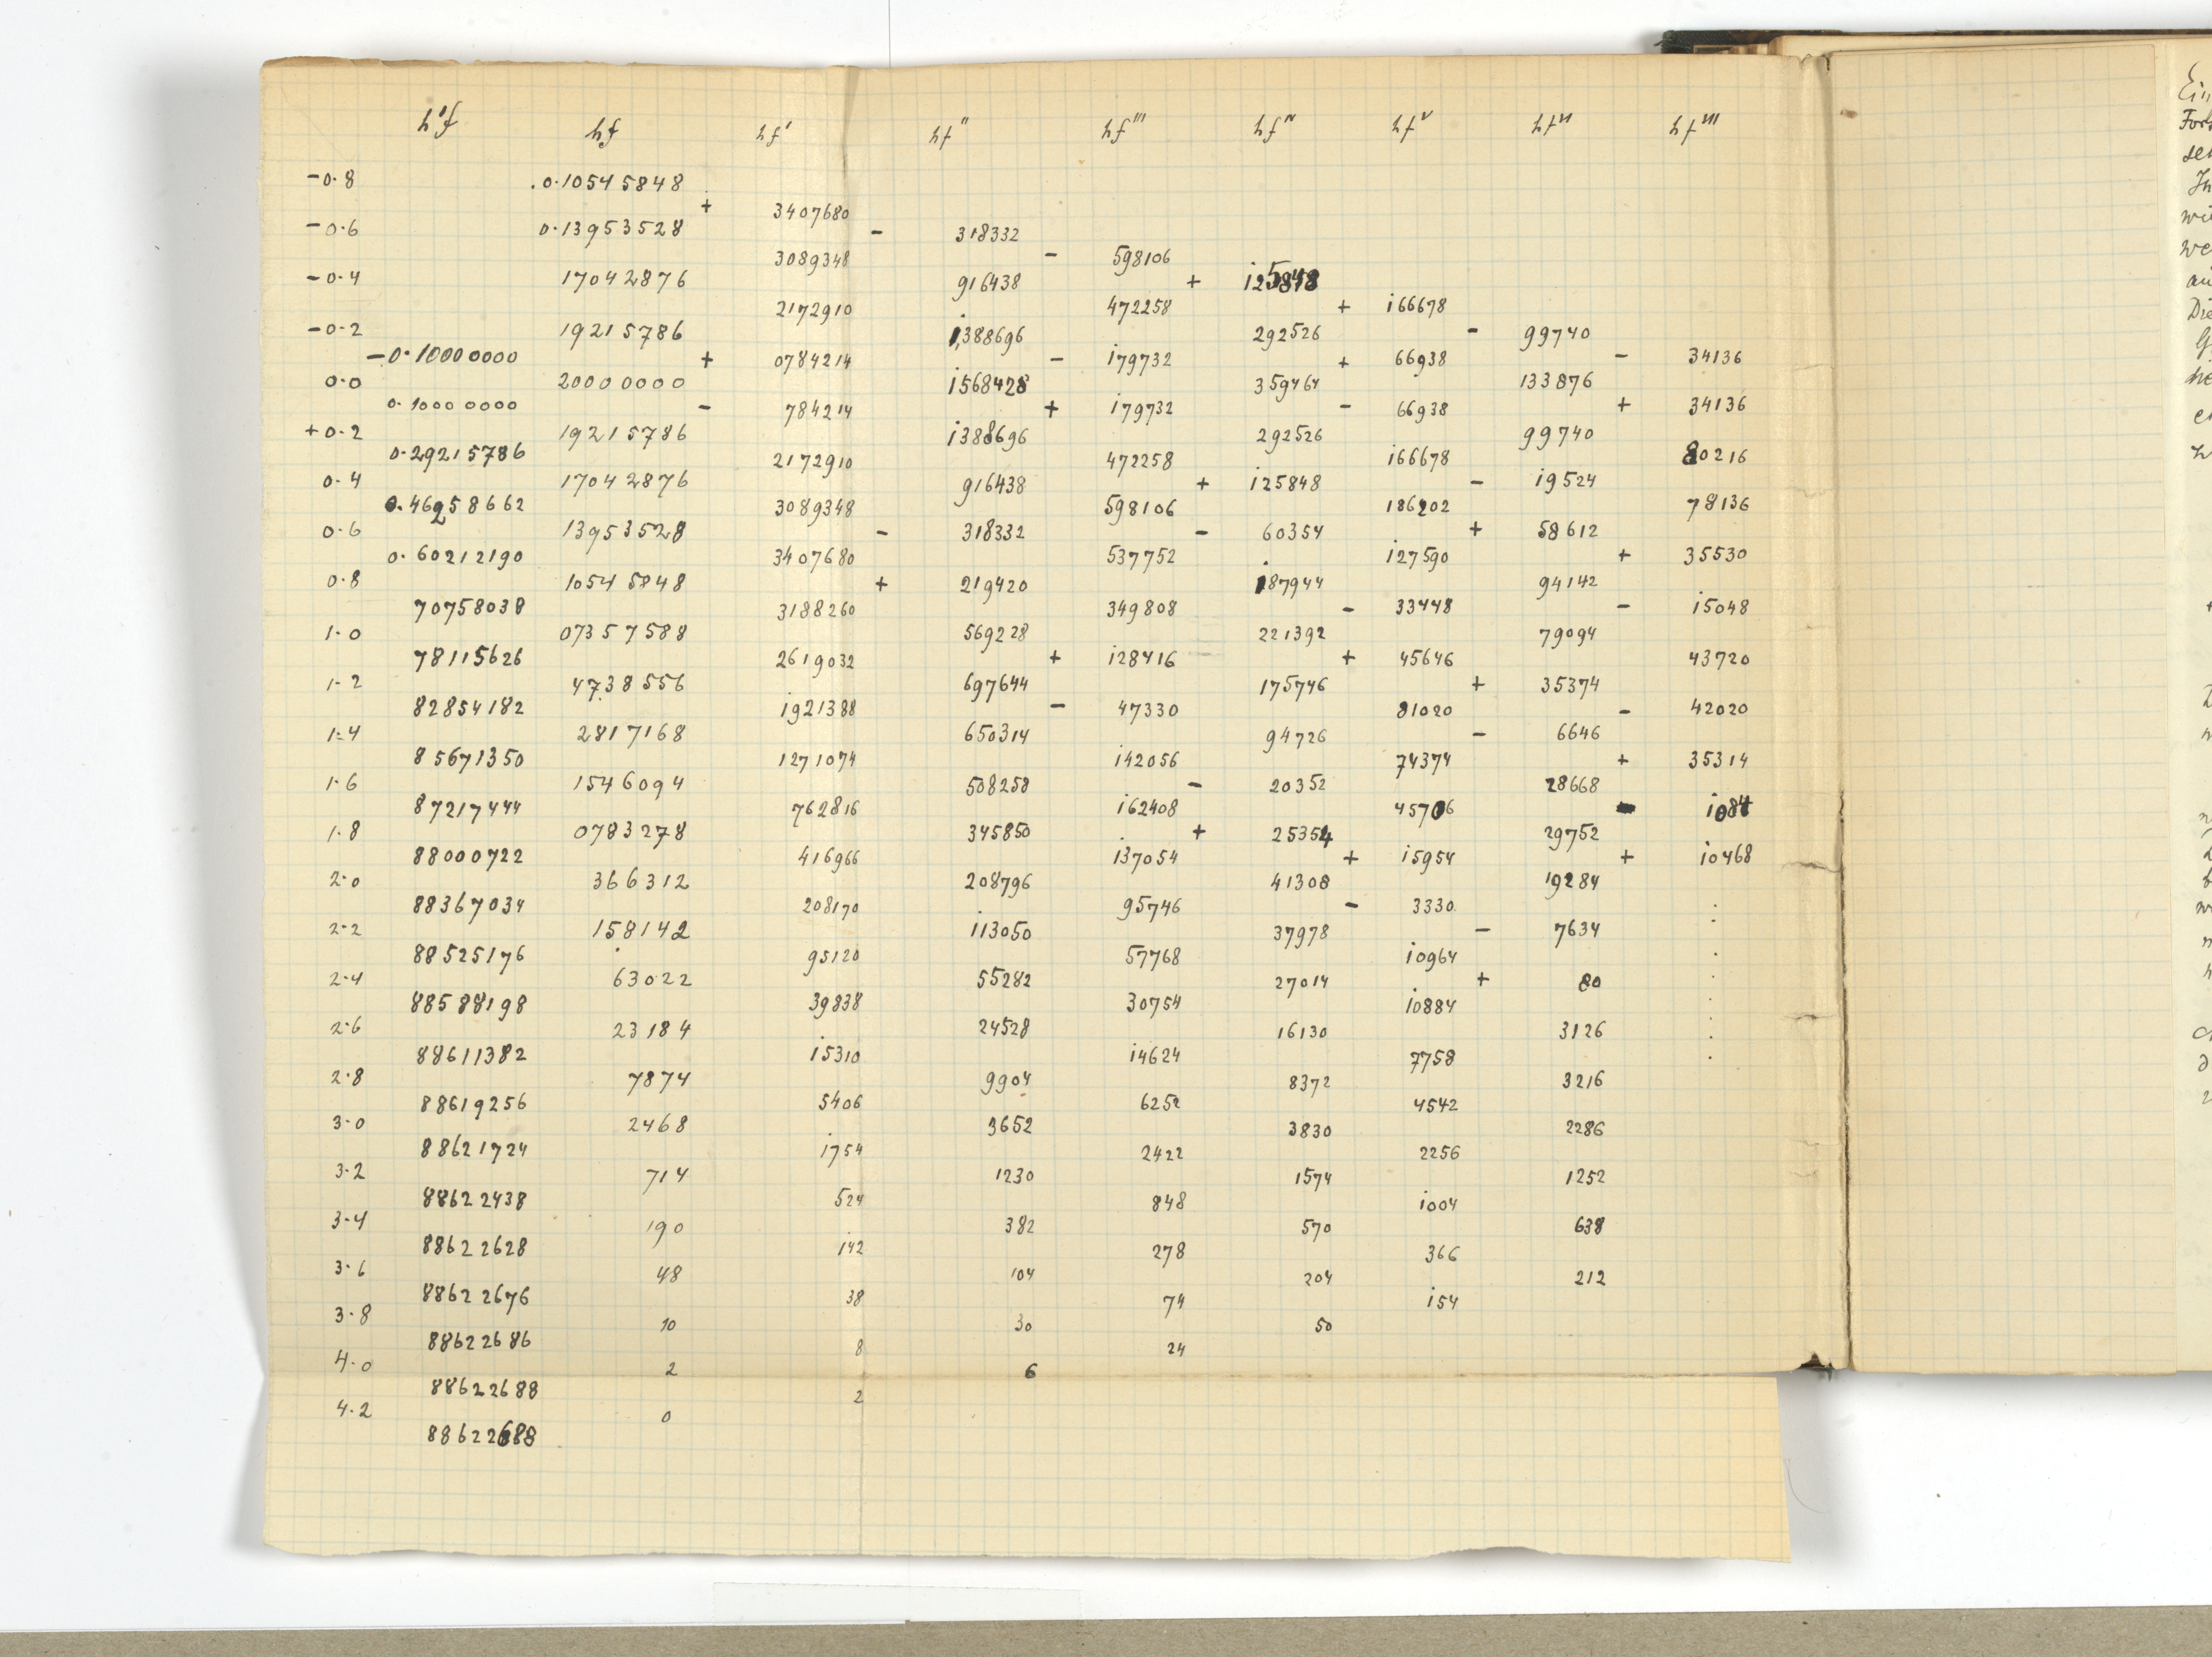 h'f hf hf' hf'' hf''' hf^IV hf^V hf^VI hf^VII
-0.8 0.10545848
+ 3407680
-0.6 0.13953528 - 318332
3089348 - 598106
-0.4 17042876 916438 + 125848
2172910 472258 + 166678
-0.2 19215786 1388696 292526 - 99740
-0.10000000 + 0784214 - 179732 + 66938 - 34136
0.0 20000000 1568428 359464 133876
0.10000000 - 784214 + 179732 - 66938 + 34136
+0.2 19215786 1388696 292526 99740
0.29215786 2172910 472258 166678 80216
0.4 17042876 916438 + 125848 - 19524
0.46258662 3089348 598106 186202 78136
0.6 13953528 - 318332 - 60354 + 58612
0.60212190 3407680 537752 127590 + 35530
0.8 10545848 + 219420 187944 94142
70758038 3188260 349808 - 33448 - 15048
1.0 07357588 569228 221392 79094
78115626 2619032 + 128416 + 45646 43720
1.2 4738556 697644 175746 + 35374
82854182 1921388 - 47330 81020 - 42020
1.4 2817168 650314 94726 - 6646
85671350 1271074 142056 74374 + 35314
1.6 1546094 508258 - 20352 28668
87217444 762816 162408 45706 - 1084
1.8 0783278 345850 + 25354 29752
88000722 416966 137054 + 15954 + 10468
2.0 366312 208796 41308 19284
88367034 208170 95746 - 3330 .
2.2 158142 113050 37978 - 7634 .
88525176 95120 57768 10964 .
2.4 63022 55282 27014 + 80 .
88588198 39838 30754 10884 .
2.6 23184 24528 16130 3126 .
88611382 15310 14624 7758 .
2.8 7874 9904 8372 3216
88619256 5406 6252 4542
3.0 2468 3652 3830 2286
88621724 1754 2422 2256
3.2 714 1230 1574 1252
88622438 524 848 1004
3.4 190 382 570 638
88622628 142 278 366
3.6 48 104 204 212
88622676 38 74 154
3.8 10 30 50
88622686 8 24
4.0 2 6
88622688 2
4.2 0
88622688